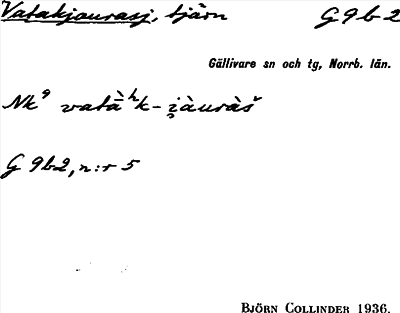 Vatakjaurasj, tjärn G9b2
Gällivare sn och tg, Norrb. län.
Nk⁹ vatàʰk-i̯àuràš
G 9b2, n:r 5
BJÖRN COLLINDER 1936.